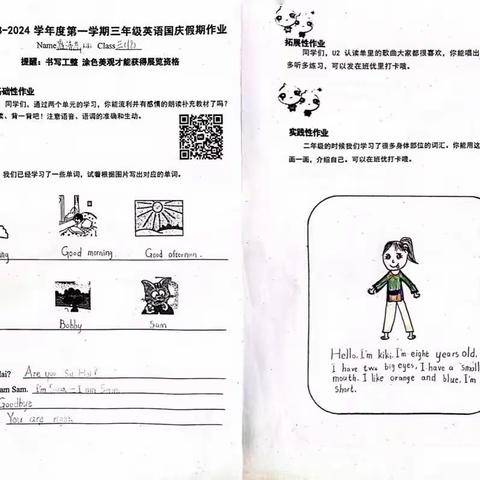 3-2024 学年度第一学期三年级英语国庆假期作业
Name Kiki Class 三(1)
提醒：书写工整 涂色美观才能获得展览资格
基础性作业
同学们，通过两个单元的学习，你能流利并有感情的朗读补充教材了吗？
读、背一背吧！注意语音、语调的准确和生动。
我们已经学习了一些单词，试着根据图片写出对应的单词。
Good morning.
Good afternoon.
Bobby
Sam
Hai? Are you Su Hai?
am Sam.
Goodbye
You are right
拓展性作业
同学们，U2 认读单里的歌曲大家都很喜欢，你能唱出
多听多练习，可以发在班优里打卡哦。
实践性作业
二年级的时候我们学习了很多身体部位的词汇。你能用这
画一画，介绍自己。可以在班优打卡哦。
Hello. I'm kiki. I'm eight years old.
I have two big eyes, I have a small
mouth. I like orange and blue. I'm
short.